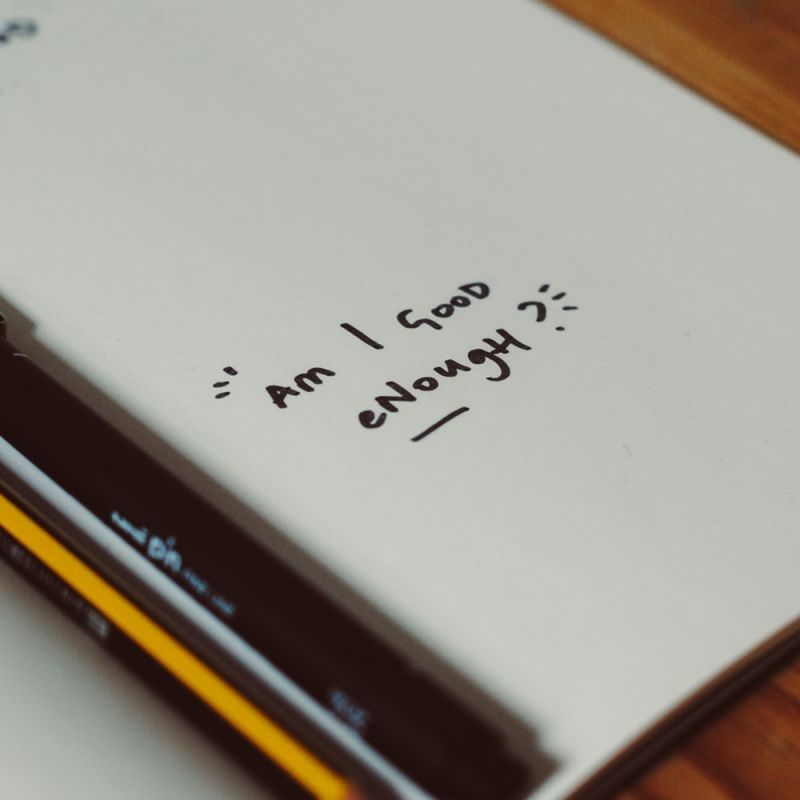 Am I Good
eNougH?
uni